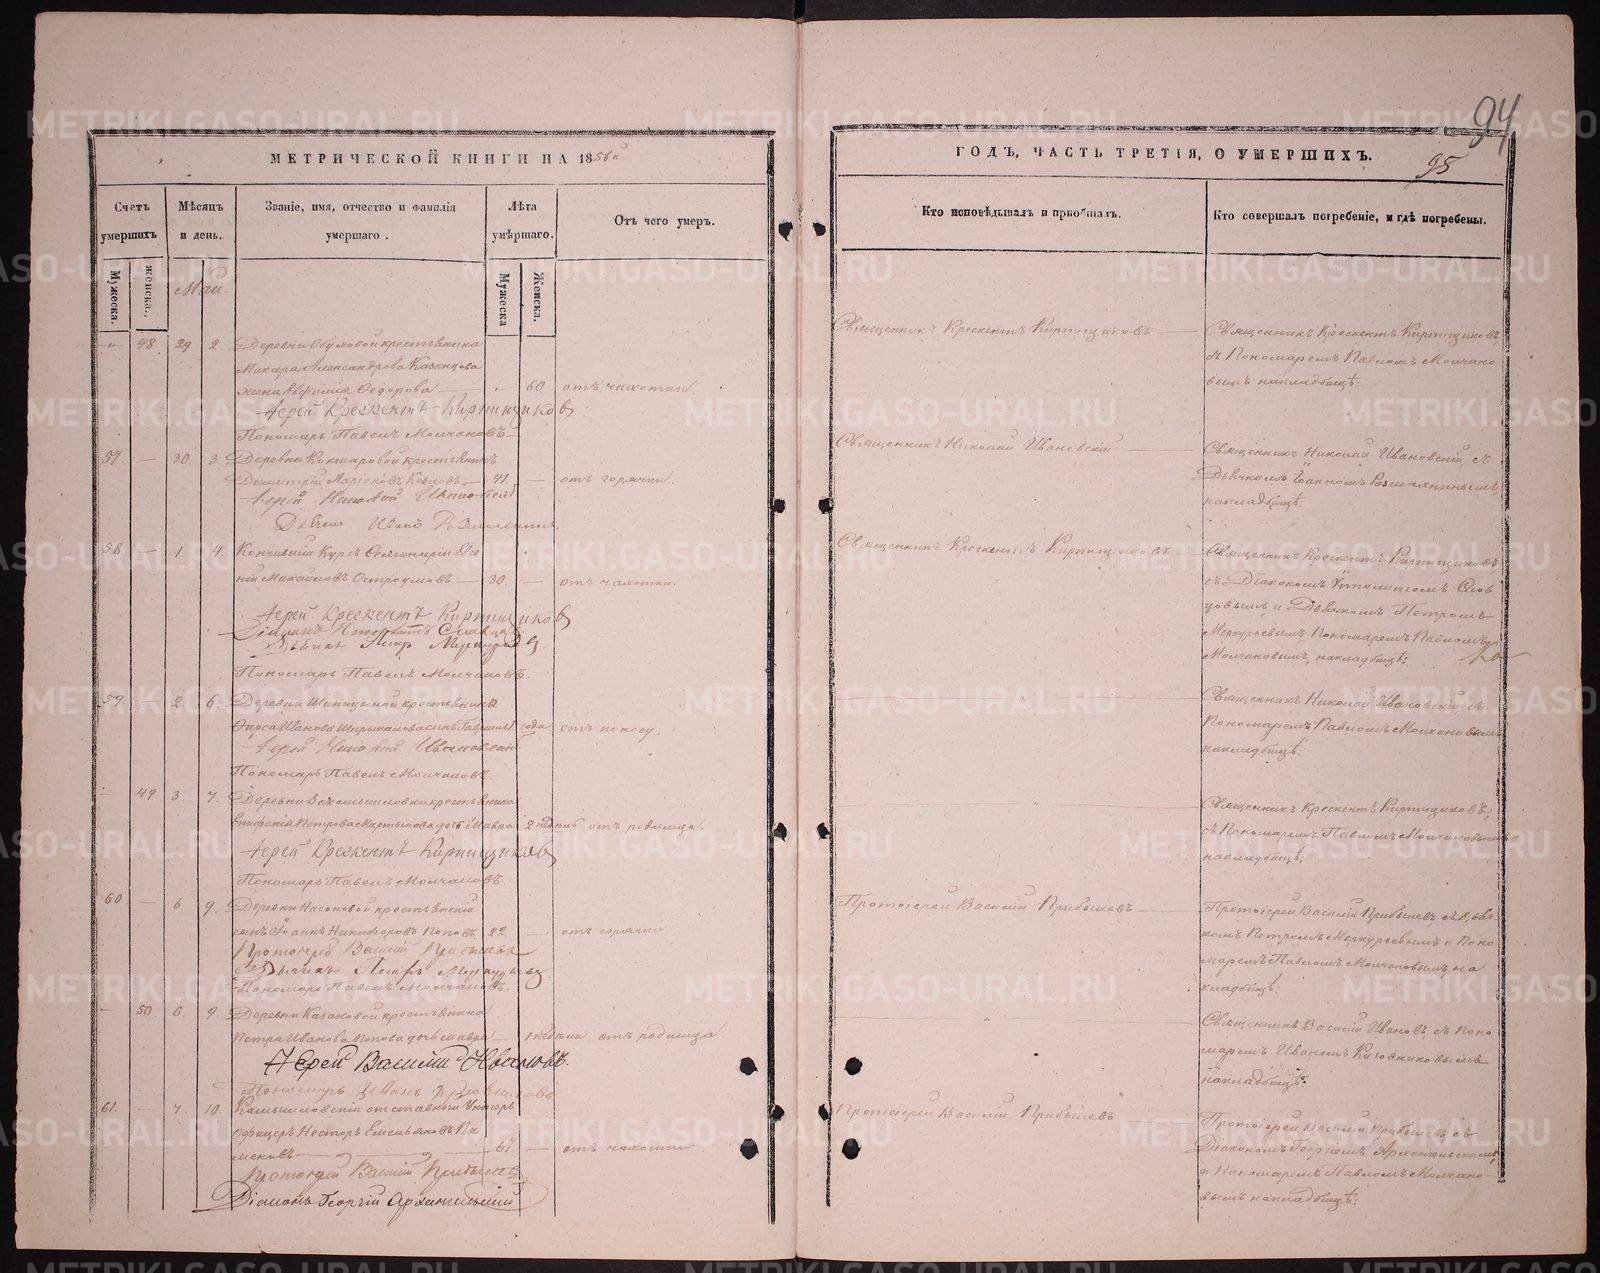 МЕТРИЧЕСКОЙ КНИГИ НА 1856й
Счетъ умершихъ
Мужеска.
женска.
Мѣсяцъ и день.
Званіе, имя, отчество и фамилія умершаго.
Лѣта умѣршаго.
Мужеска
Женска.
Отъ чего умеръ.
Май.
48 29 2 Деревни Обуховой крестьянина
Макара Александрова Казанцова
жена Евфимія Ѳедорова 60 отъ чахотки
Іерей Крескентъ Киртищиковъ
Пономарь Павелъ Молчановъ
57 — 30 3 Деревни Кокшаровой крестьянинъ
Димитрій 41 — отъ горячки
Іерей Николай Ивановскій
Дьячекъ Иванъ
58 — 1. 4. Кончившій Курсъ Семинаріи Евге
ній Михайловъ Остроумовъ — 30. — отъ чахотки.
Іерей Крескентъ Киртищиковъ
Діаконъ Ипполитъ Словцовъ
Дьячекъ Петръ Меркурьевъ
Пономарь Павелъ Молчановъ.
59 — 2 6. Деревни Шипицыной крестьянина
Ивановa сынъ Гавріилъ 1 года отъ поносу.
Іерей Николай Ивановскій
Пономарь Павелъ Молчановъ.
49 3 7. Деревни крестьянина
Епифанія Петрова Мартынова дочь Мавра 2 недѣль отъ родимца.
Іерей Крескентъ Киртищиковъ
Пономарь Павелъ Молчановъ.
60 — 6 9. Деревни Насоновой крестьянскій
сынъ Іоаннъ Никифоровъ Поповъ 22. — отъ горячки
Протоіерей Василій Прибылевъ
Дьячекъ Петръ Меркурьевъ
Пономарь Павелъ Молчановъ.
50. 6 9. Деревни Казаковой крестьянина
Петра Иванова Попова дочь Мавра 1 недѣли отъ родимца.
Іерей Василій Ивановъ.
Пономарь Иванъ
61. — 7. 10. Камышловскій отставный Унтеръ
офицеръ Несторъ Емельяновъ Пи
меновъ 67. — отъ чахотки
Протоіерей Василій Прибылевъ
Діаконъ Георгій Архангельскій
94
ГОДЪ, ЧАСТЬ ТРЕТІЯ, О УМЕРШИХЪ.
95
Кто исповѣдывалъ и пріобщалъ.
Кто совершалъ погребеніе, и гдѣ погребены.
Священникъ Крескентъ Киртищиковъ
Священникъ Крескентъ Киртищиковъ
съ Пономаремъ Павломъ Молчано
вымъ на кладбищѣ.
Священникъ Николай Ивановскій
Священникъ Николай Ивановскій съ
Дьячкомъ Іоанномъ
на кладбищѣ.
Священникъ Крескентъ Киртищиковъ
Священникъ Крескентъ Киртищиковъ
съ Діакономъ Ипполитомъ Слов
цовымъ и Дьячкомъ Петромъ
Меркурьевымъ Пономаремъ Павломъ
Молчановымъ, на кладбищѣ.
Священникъ Николай Ивановскій, съ
Пономаремъ Павломъ Молчановымъ
на кладбищѣ.
Священникъ Крескентъ Киртищиковъ,
съ Пономаремъ Павломъ Молчановымъ
на кладбищѣ.
Протоіерей Василій Прибылевъ
Протоіерей Василій Прибылевъ, съ Дьяч
комъ Петромъ Меркурьевымъ и Поно
маремъ Павломъ Молчановымъ на
кладбищѣ.
Священникъ Василій Ивановъ съ Поно
маремъ Иваномъ
на кладбищѣ.
Протоіерей Василій Прибылевъ
Протоіерей Василій Прибылевъ съ
Діакономъ Георгіемъ Архангельскимъ,
и Пономаремъ Павломъ Молчано
вымъ на кладбищѣ.
METRIKI.GASO-URAL.RU